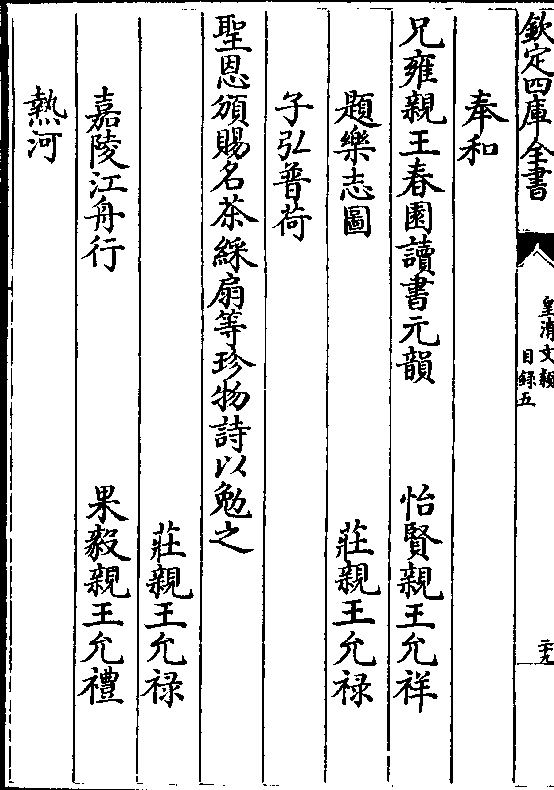 欽定四庫全書
皇清文穎
目錄五
二十九
奉和
兄雍親王春園讀書元韻　怡賢親王允祥
題樂志圖　莊親王允祿
子弘普荷
聖恩頒賜名茶綵扇等珍物詩以勉之
莊親王允祿
嘉陵江舟行　果毅親王允禮
熱河